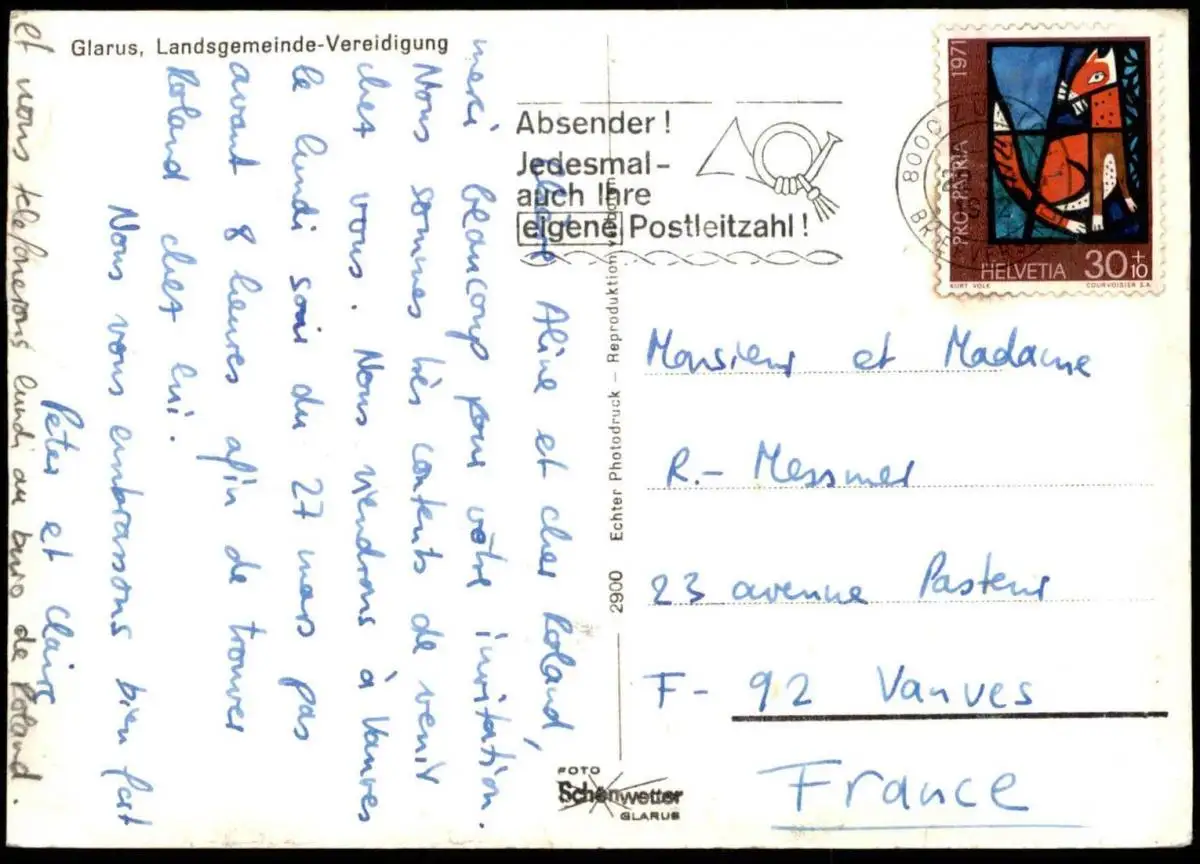 Glarus, Landsgemeinde-Vereidigung
Absender !
Jedesmal-
auch Ihre
eigene Postleitzahl !
PRO PATRIA 1971
HELVETIA 30+10
KURT VOLK COURVOISIER S.A.
8000
BRIEFVERS
Aline et cher Roland,
merci beaucoup pour vôtre invitation.
Nous sommes très contents de venir
chez vous. Nous viendrons à Vanves
le lundi soir du 27 mars pas
avant 8 heures afin de trouver
Roland chez lui.
Nous vous embrassons bien fort
Peter et Claire
et nous telefonerons lundi au buro de Roland.
2900 Echter Photodruck – Reproduktion verboten
Monsieur et Madame
R.- Messmer
23 avenue Pasteur
F- 92 Vanves
France
FOTO
Schönwetter
GLARUS